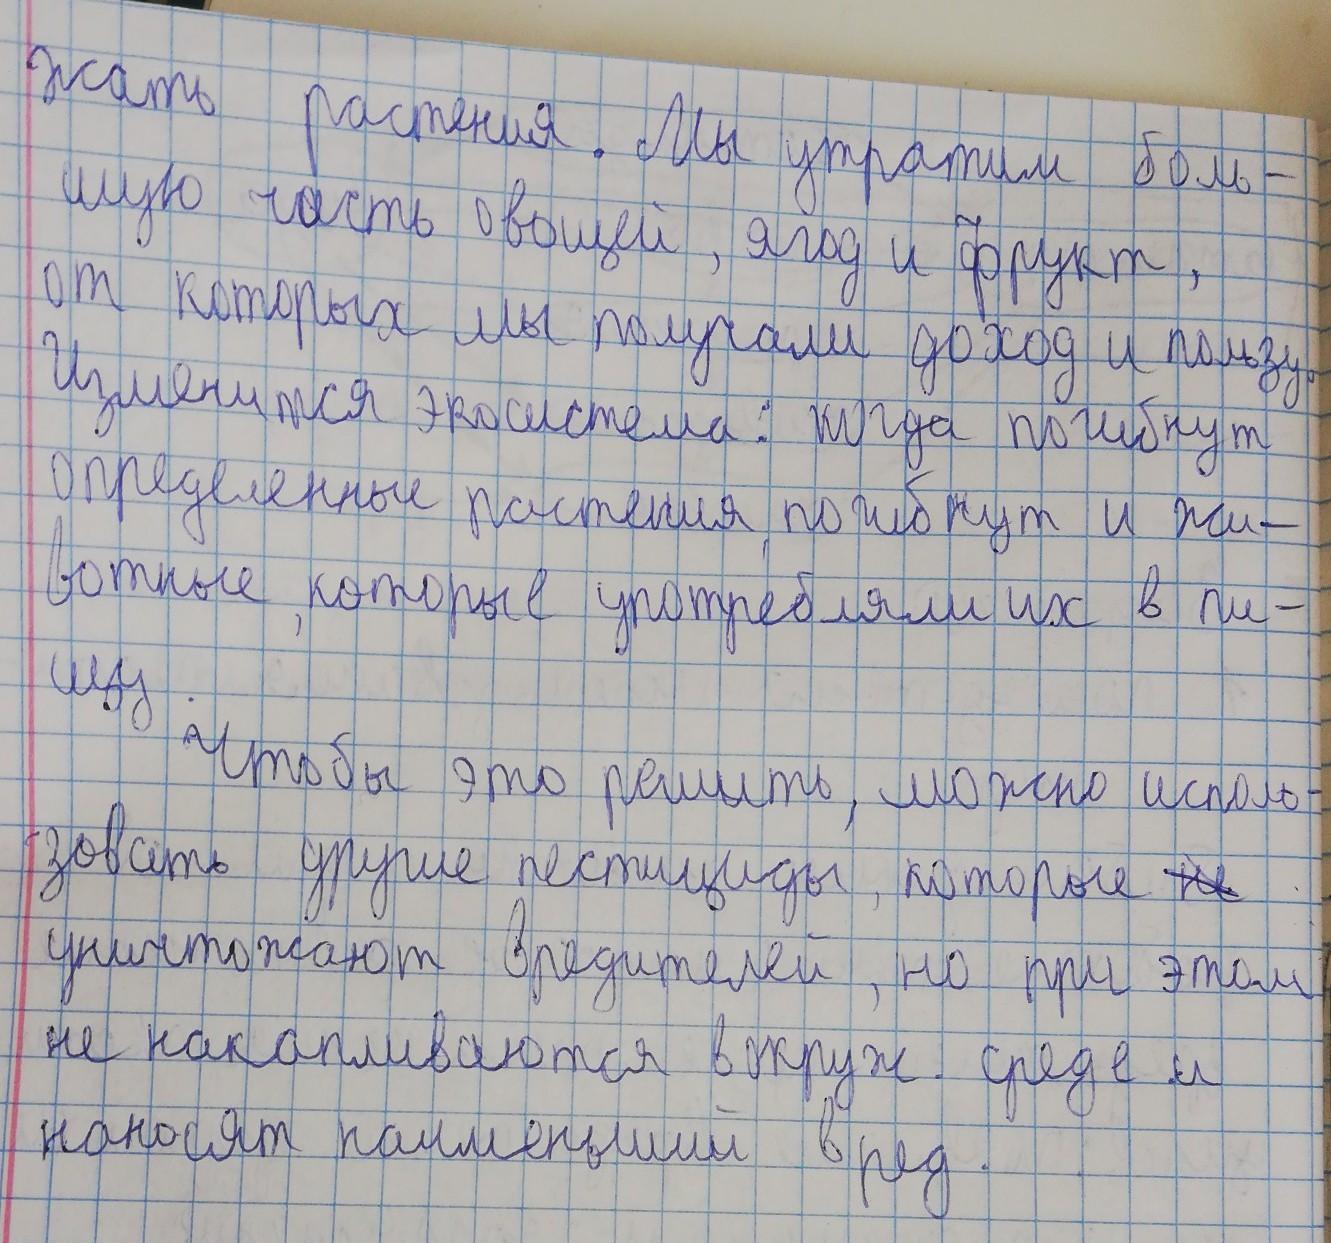 жать растения. Мы утратим боль-
шую часть овощей, ягод и фрукт,
от которых мы получали доход и пользу.
Изменится экосистема: когда погибнут
определенные растения, погибнут и жи-
вотные, которые употребляли их в пи-
щу.
Чтобы это решить, можно исполь-
зовать другие пестициды, которые не
уничтожают вредителей, но при этом
не накапливаются в окруж. среде и
наносят наименьший вред.